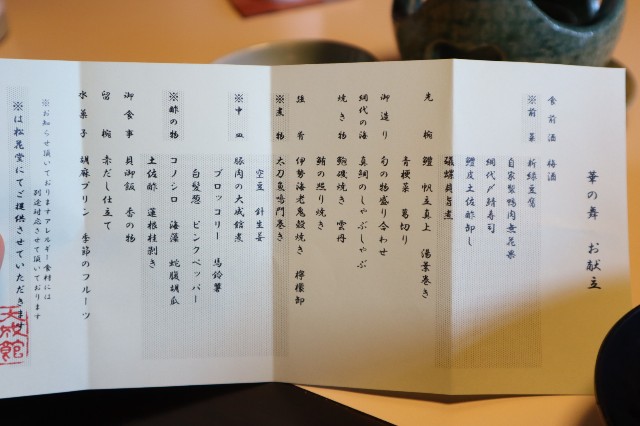 華の舞 お献立
食前酒 梅酒
※前菜 新緑豆腐
自家製鴨肉無花果
網代〆鯖寿司
鱧皮土佐酢卸し
磯螺貝旨煮
先椀 鱧 帆立真上 湯葉巻き
青梗菜 葛切り
御造り 旬の物盛り合わせ
網代の海 真鯛のしゃぶしゃぶ
焼き物 鮑磯焼き 雲丹
鮪の照り焼き
強肴 伊勢海老鬼殻焼き 檸檬卸
※煮物 太刀魚鳴門巻き
空豆 針生姜
※中皿 豚肉の大成館煮
ブロッコリー 馬鈴薯
白髪葱 ピンクペッパー
※酢の物 コノシロ 海藻 蛇腹胡瓜
土佐酢 蓮根桂剥き
御食事 貝御飯 香の物
留椀 赤だし仕立て
水菓子 胡麻プリン 季節のフルーツ
※お知らせ頂いておりますアレルギー食材には
別途対応させて頂いております
※は松風堂にてご提供させていただきます
大成館